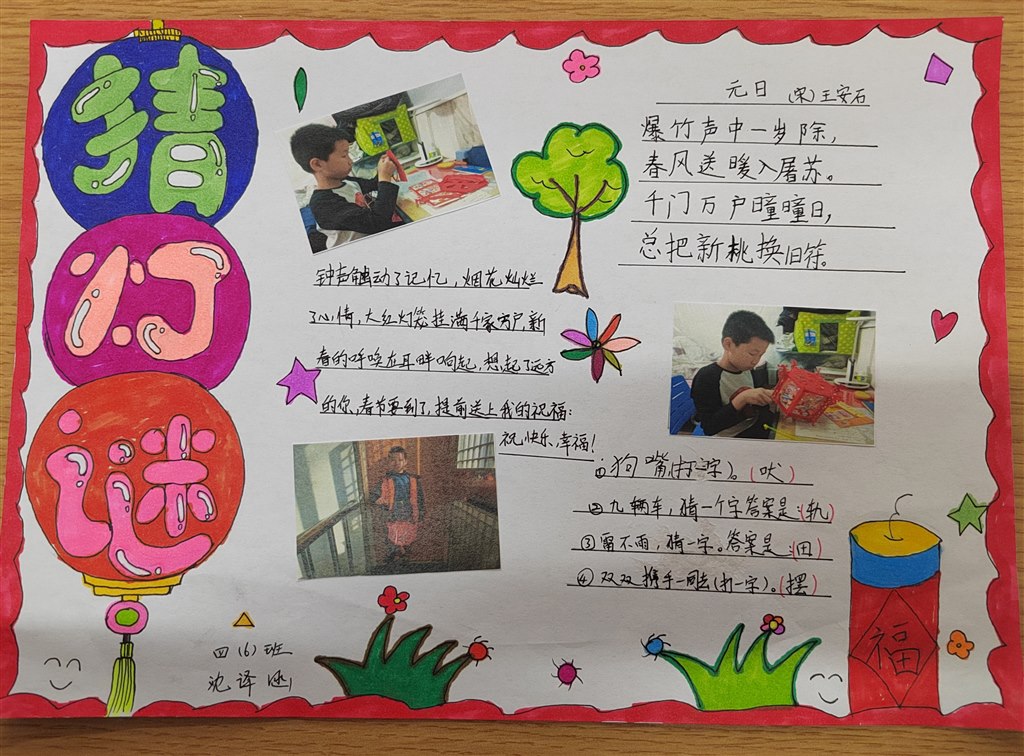 猜
灯
谜
元日 (宋)王安石
爆竹声中一岁除,
春风送暖入屠苏。
千门万户瞳瞳日,
总把新桃换旧符。
钟声触动了记忆,烟花灿烂
了心情,大红灯笼挂满千家万户,新
春的呼唤在耳畔响起,想起了远方
的你,春节要到了,提前送上我的祝福:
祝快乐、幸福!
①狗嘴(打一字)。(吠)
②九辆车,猜一个字答案是:(轨)
③雷不雨,猜一字。答案是:(田)
④双双携手一同去(打一字)。(摆)
福
四(6)班
沈译涵